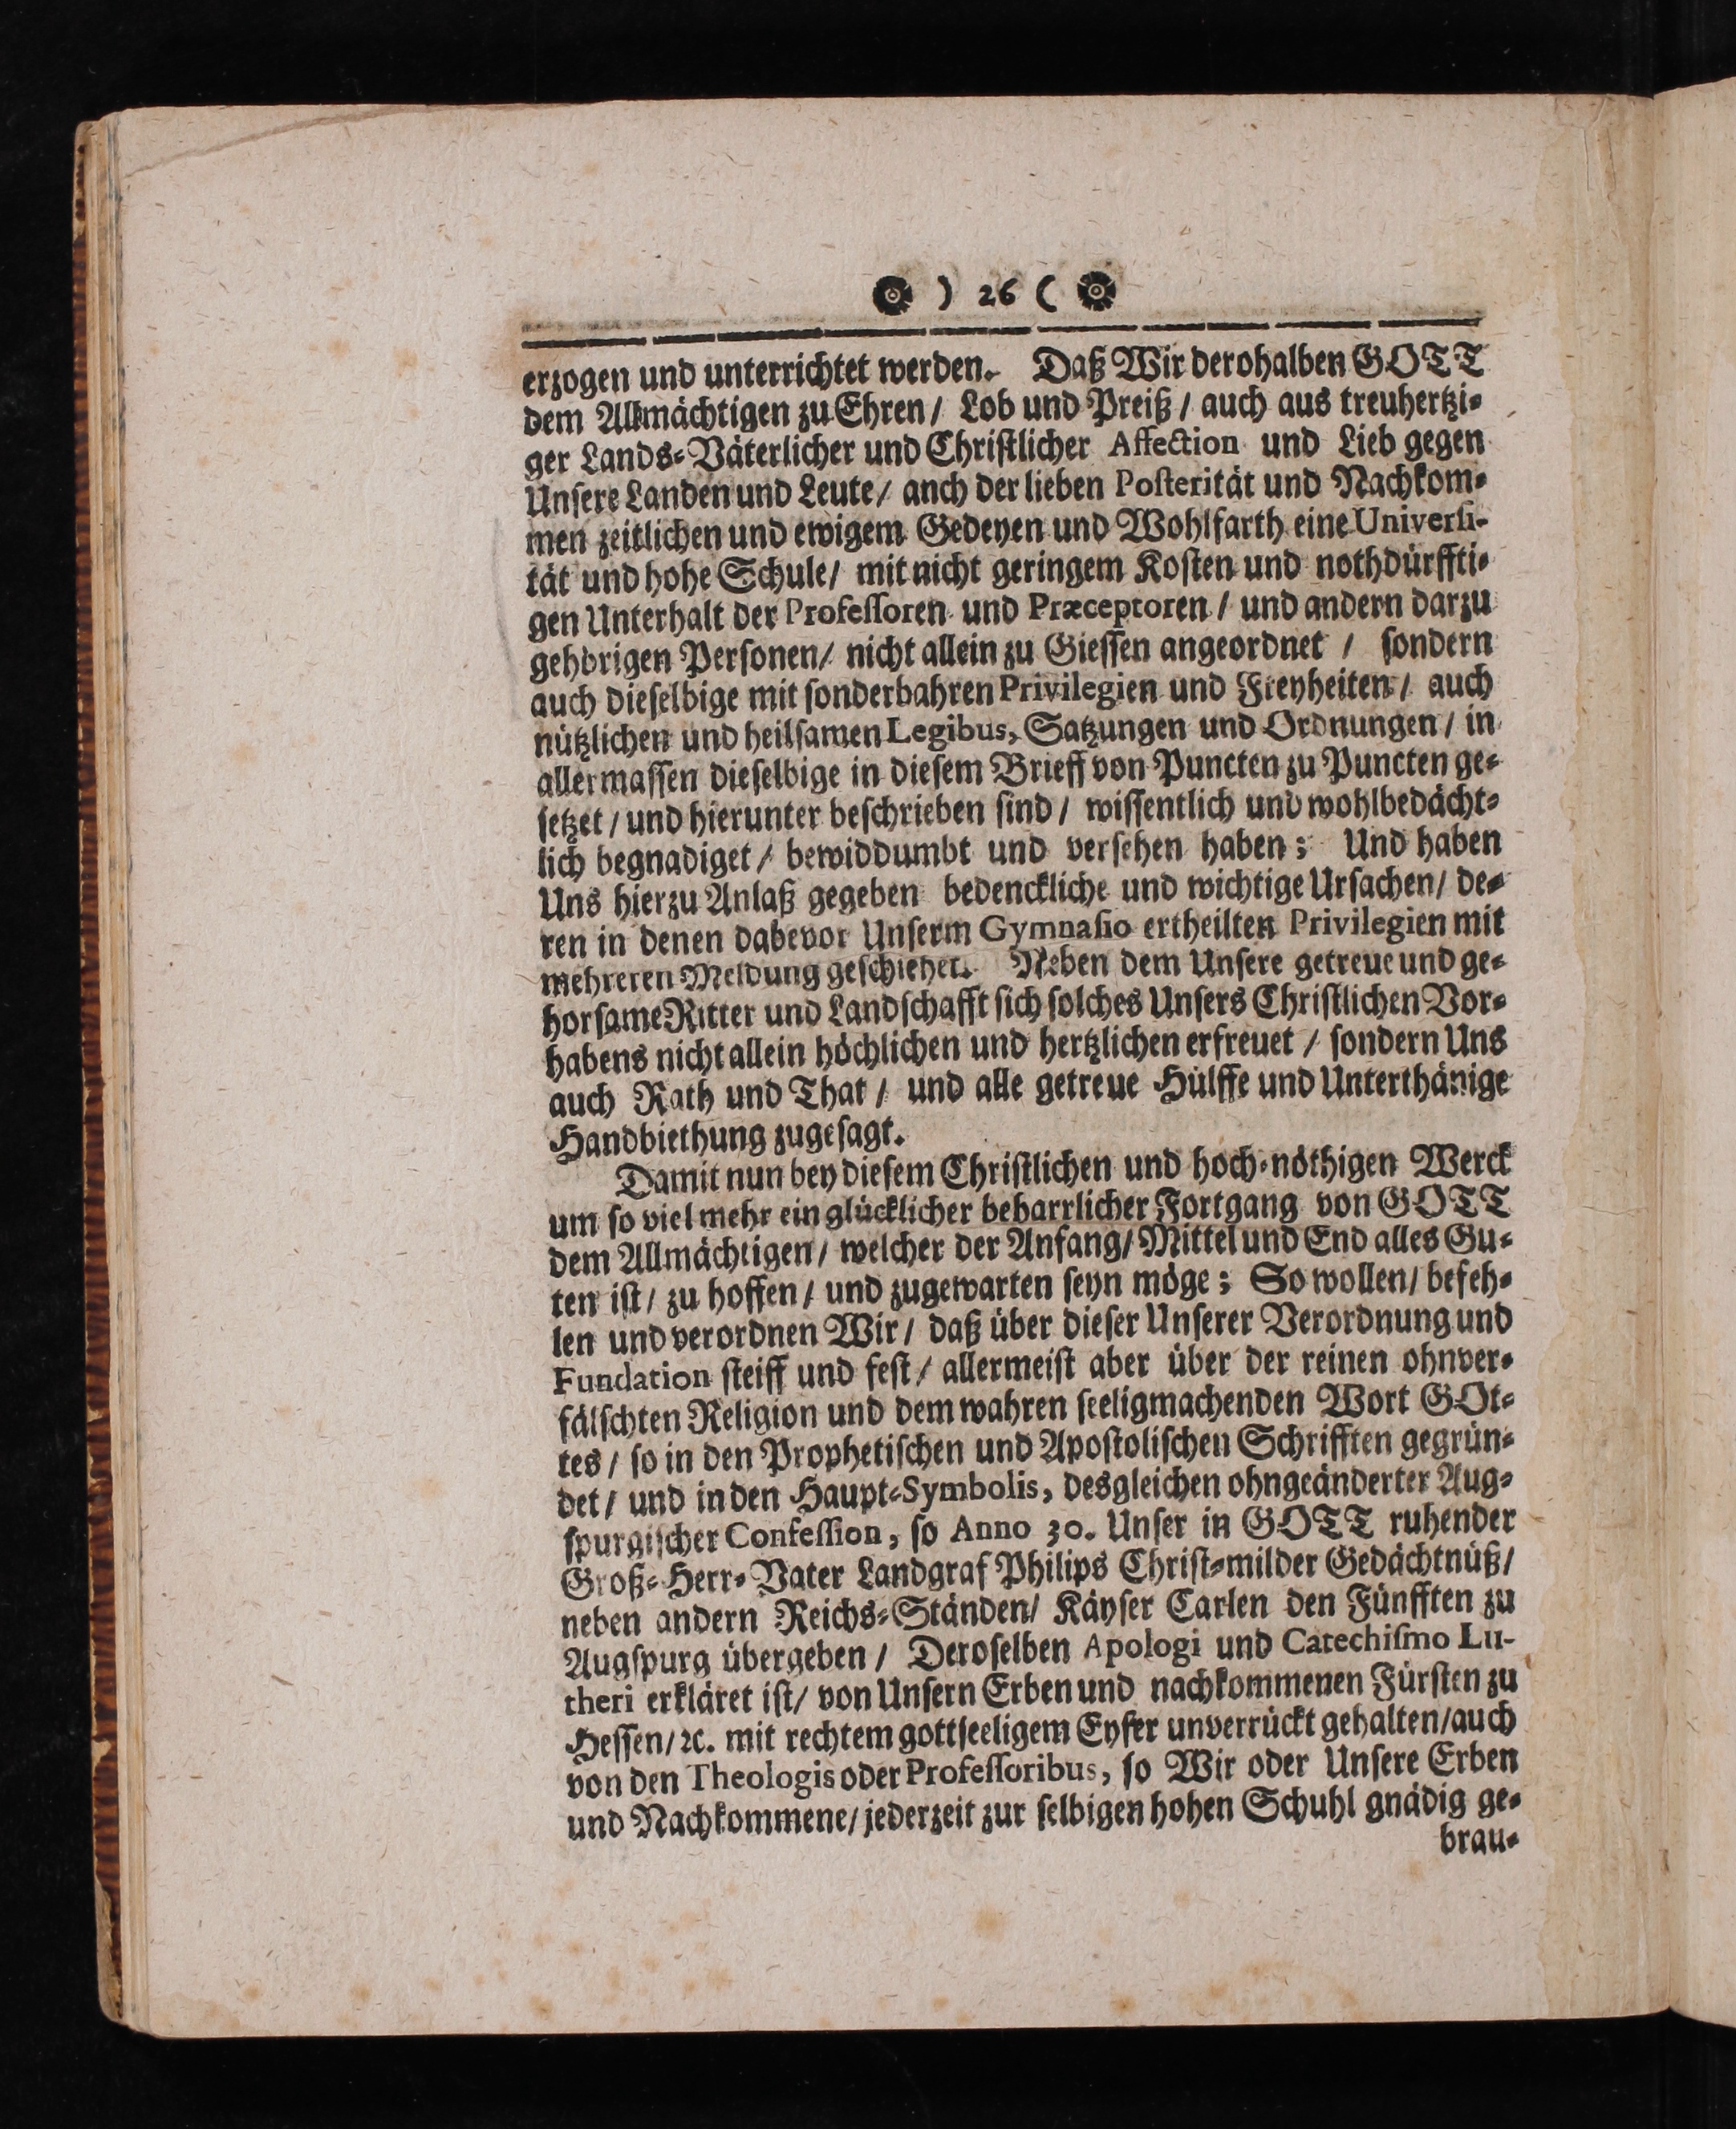 ) 26 (
erzogen und unterrichtet werden. Daß Wir derohalben GOTT
dem Allmächtigen zu Ehren / Lob und Preiß / auch aus treuhertzi-
ger Lands-Väterlicher und Christlicher Affection und Lieb gegen
Unsere Landen und Leute / anch der lieben Posterität und Nachkom-
men zeitlichen und ewigem Gedeyen und Wohlfarth eine Universi-
tät und hohe Schule / mit nicht geringem Kosten und nothdürffti-
gen Unterhalt der Professoren und Præceptoren / und andern darzu
gehörigen Personen / nicht allein zu Giessen angeordnet / sondern
auch dieselbige mit sonderbahren Privilegien und Freyheiten / auch
nützlichen und heilsamen Legibus, Satzungen und Ordnungen / in
allermassen dieselbige in diesem Brieff von Puncten zu Puncten ge-
setzet / und hierunter beschrieben sind / wissentlich und wohlbedächt-
lich begnadiget / bewiddumbt und versehen haben; Und haben
Uns hierzu Anlaß gegeben bedenckliche und wichtige Ursachen / de-
ren in denen dabevor Unserm Gymnasio ertheilten Privilegien mit
mehreren Meldung geschiehet. Neben dem Unsere getreue und ge-
horsame Ritter und Landschafft sich solches Unsers Christlichen Vor-
habens nicht allein höchlichen und hertzlichen erfreuet / sondern Uns
auch Rath und That / und alle getreue Hülffe und Unterthänige
Handbiethung zugesagt.
Damit nun bey diesem Christlichen und hoch-nöthigen Werck
um so viel mehr ein glücklicher beharrlicher Fortgang von GOTT
dem Allmächtigen / welcher der Anfang / Mittel und End alles Gu-
ten ist / zu hoffen / und zugewarten seyn möge; So wollen / befeh-
len und verordnen Wir / daß über dieser Unserer Verordnung und
Fundation steiff und fest / allermeist aber über der reinen ohnver-
fälschten Religion und dem wahren seeligmachenden Wort GOt-
tes / so in den Prophetischen und Apostolischen Schrifften gegrün-
det / und in den Haupt-Symbolis, desgleichen ohngeänderter Aug-
spurgischer Confession, so Anno 30. Unser in GOTT ruhender
Groß-Herr-Vater Landgraf Philips Christ-milder Gedächtnüß /
neben andern Reichs-Ständen / Käyser Carlen den Fünfften zu
Augspurg übergeben / Deroselben Apologi und Catechismo Lu-
theri erkläret ist / von Unsern Erben und nachkommenen Fürsten zu
Hessen / ꝛc. mit rechtem gottseeligem Eyfer unverrückt gehalten / auch
von den Theologis oder Professoribus, so Wir oder Unsere Erben
und Nachkommene / jederzeit zur selbigen hohen Schuhl gnädig ge-
brau-